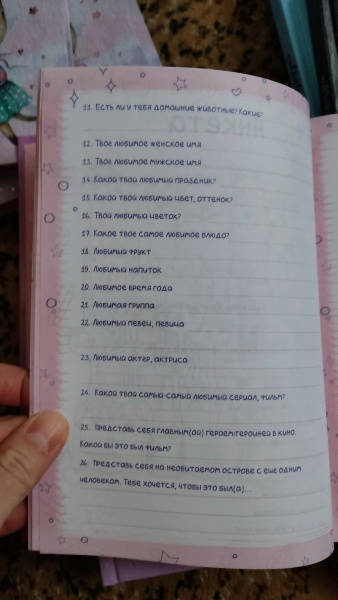 13. Есть ли у тебя домашние животные? Какие?
12. Твое любимое женское имя
13. Твое любимое мужское имя
14. Какой твой любимый праздник?
15. Какой твой любимый цвет, оттенок?
16. Твой любимый цветок?
17. Какое твое самое любимое блюдо?
18. Любимый фрукт
19. Любимый напиток
20. Любимое время года
21. Любимая группа
22. Любимый певец, певица
23. Любимый актер, актриса
24. Какой твой самый-самый любимый сериал, фильм?
25. Представь себя главным(ой) героем/героиней в кино.
Какой бы это был фильм?
26. Представь себя на необитаемом острове с еще одним
человеком. Тебе хочется, чтобы это был(а)...